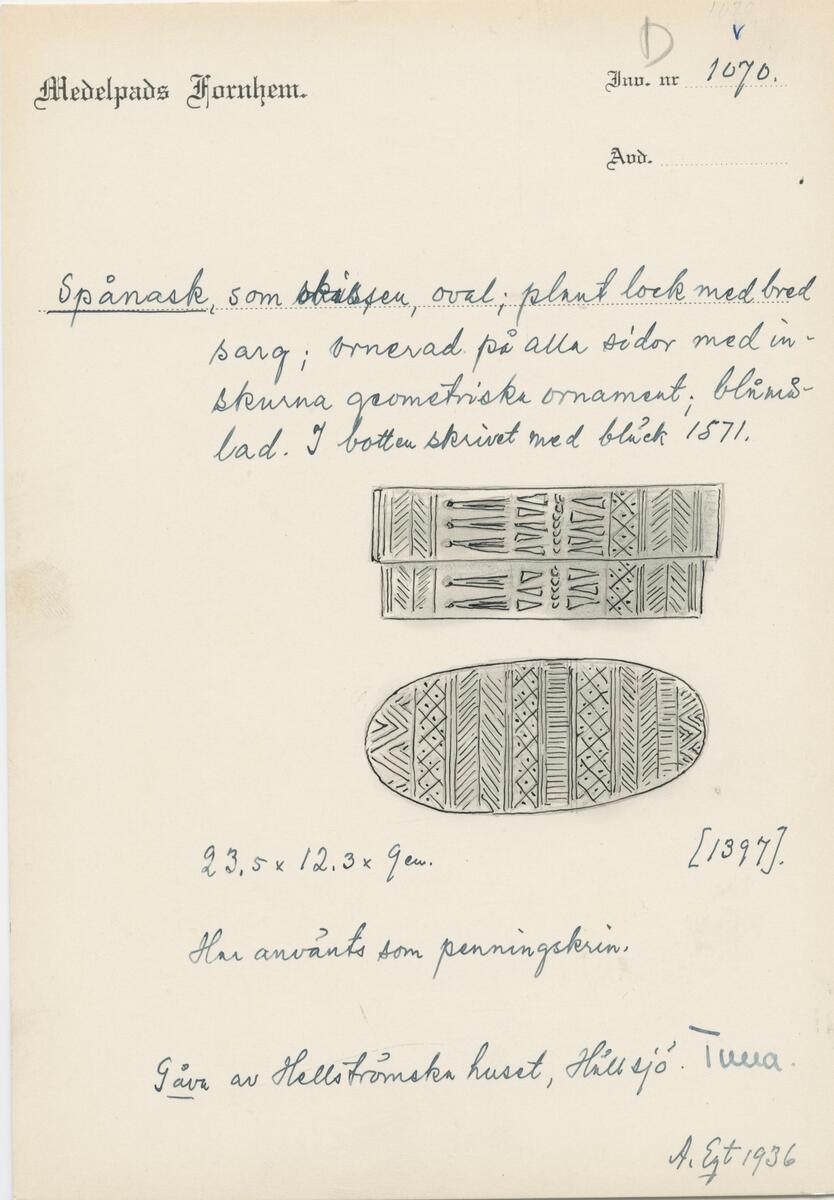 D
Medelpads Fornhem.
Inv. nr 1070.
Avd.
Spånask, som skissen, oval; plant lock med bred
sarg; ornerad på alla sidor med in-
skurna geometriska ornament; blåmå-
lad. I botten skrivet med bläck 1571.
23.5 x 12.3 x 9 cm.
[1397].
Har använts som penningskrin.
Gåva av Hellströmska huset, Hällsjö. Tuna.
A. Egt 1936